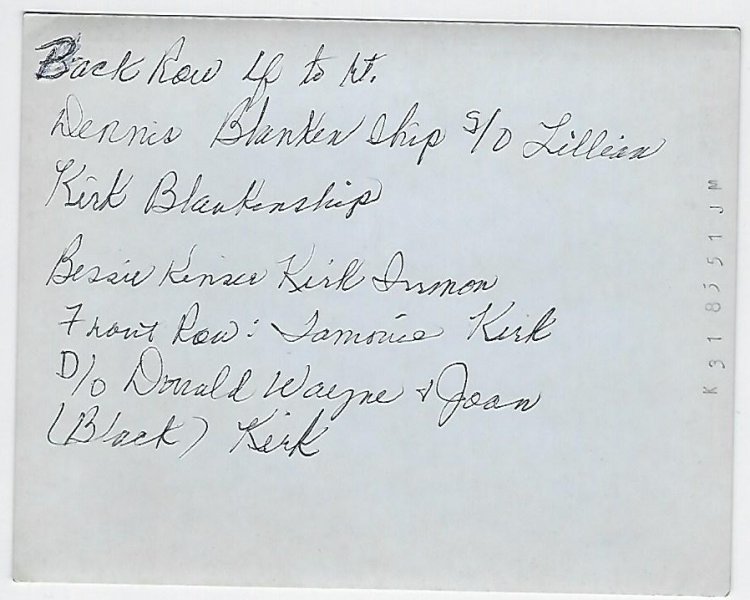 Back Row Lf to Rt.
Dennis Blanken ship S/O Lillian
Kirk Blankenship
Bessie Kinser Kirk Inmon
Front Row: Tamonie Kirk
D/O Donald Wayne & Joan
(Black) Kirk
K318551JM